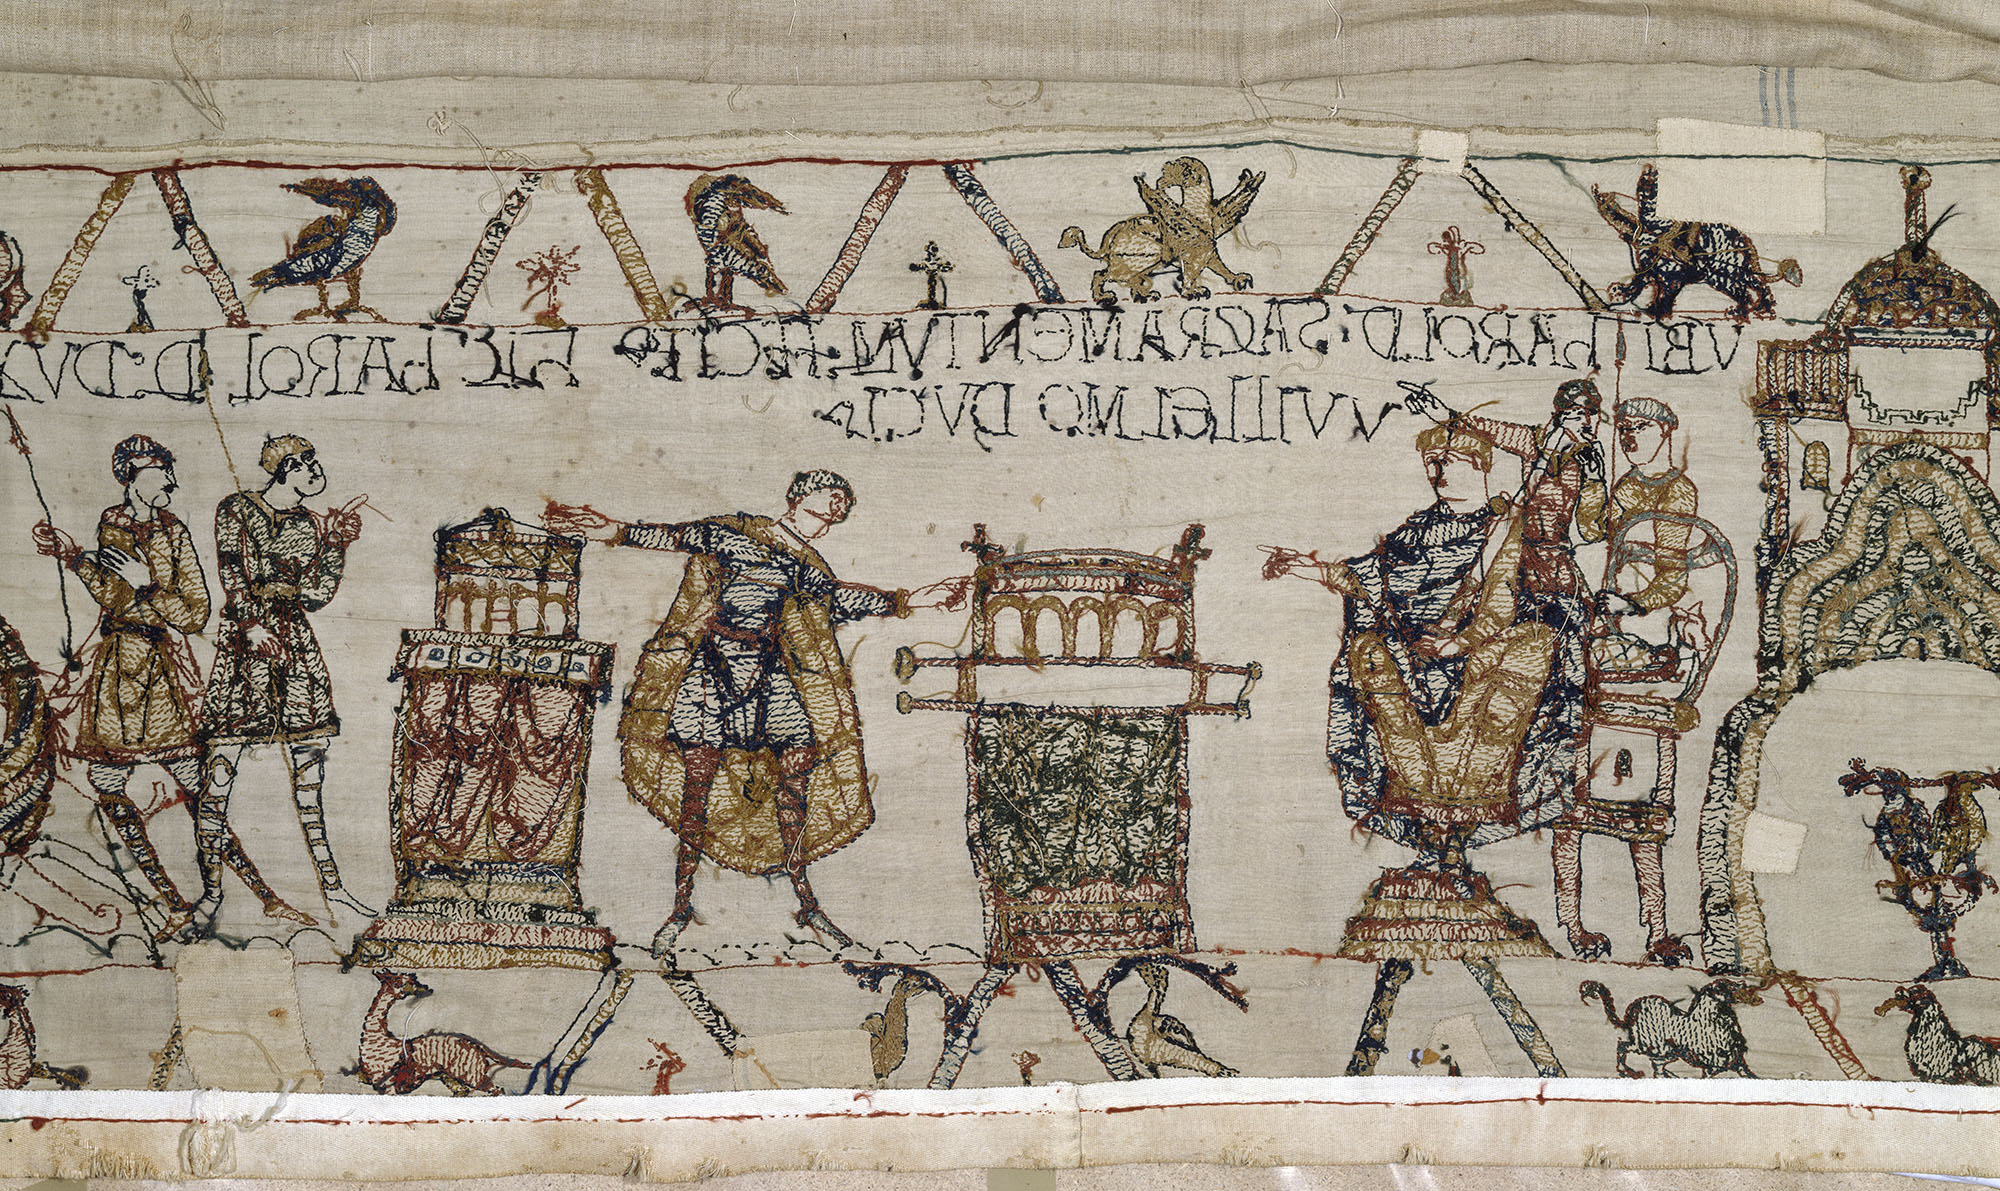 VBI HAROLD: SACRAMENTVM: FECIT:
VVILLELMO DVCI:
HIC HAROLD: DVX